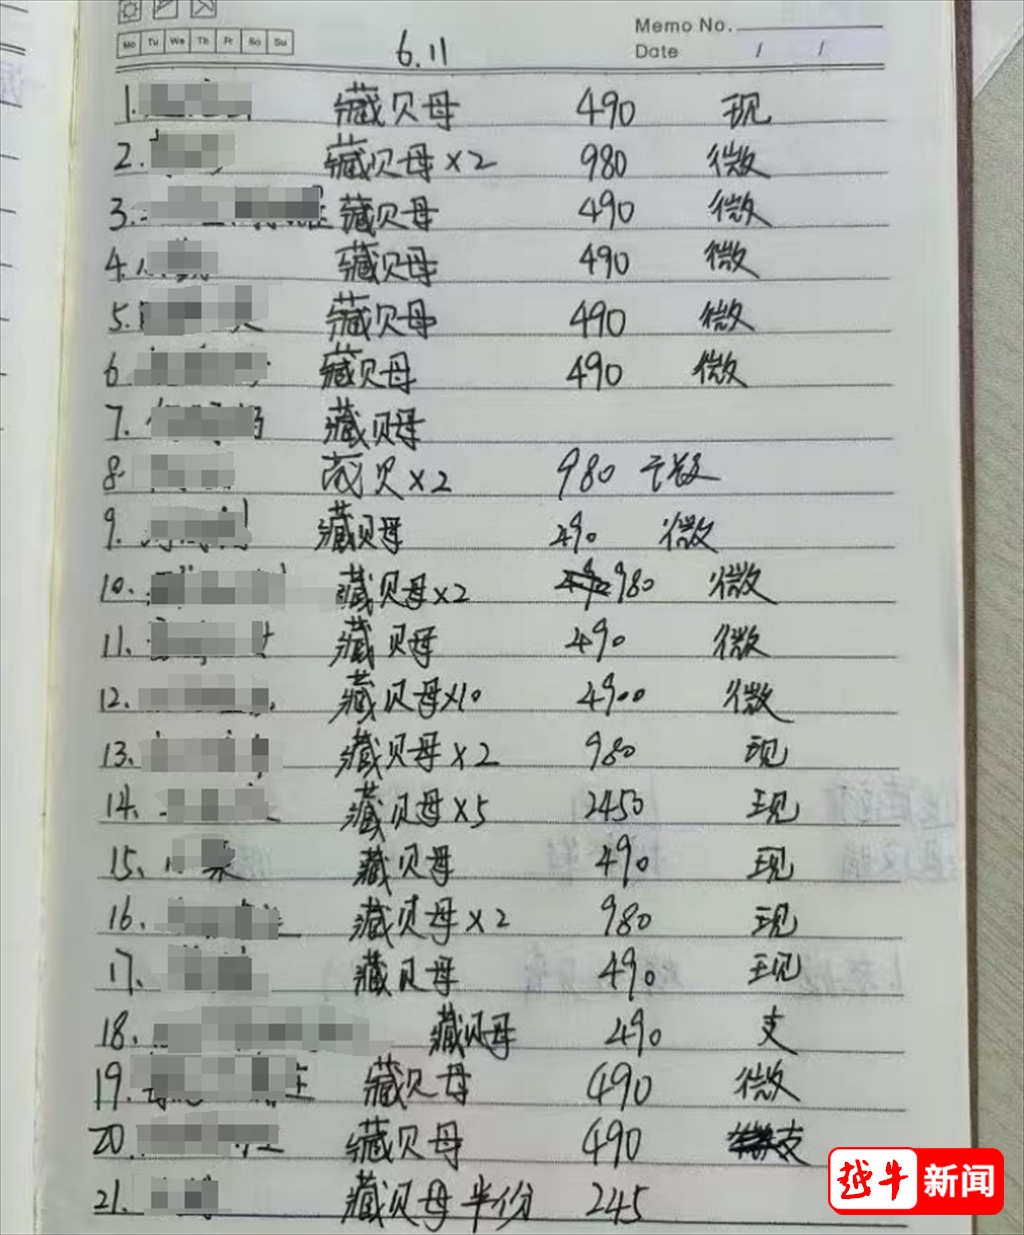 Memo No.
Mo Tu We Th Fr Sa Su
Date / /
6.11
1. 藏贝母 490 现
2. 藏贝母×2 980 微
3. 藏贝母 490 微
4. 藏贝母 490 微
5. 藏贝母 490 微
6 藏贝母 490 微
7. 藏贝母
8. 藏贝×2 980 微
9. 藏贝母 490 微
10. 藏贝母×2 980 微
11. 藏贝母 490 微
12. 藏贝母×10 4900 微
13. 藏贝母×2 980 现
14. 藏贝母×5 2450 现
15. 藏贝母 490 现
16. 藏贝母×2 980 现
17. 藏贝母 490 现
18. 藏贝母 490 支
19. 藏贝母 490 微
20. 藏贝母 490 支
21. 藏贝母半份 245
越牛新闻